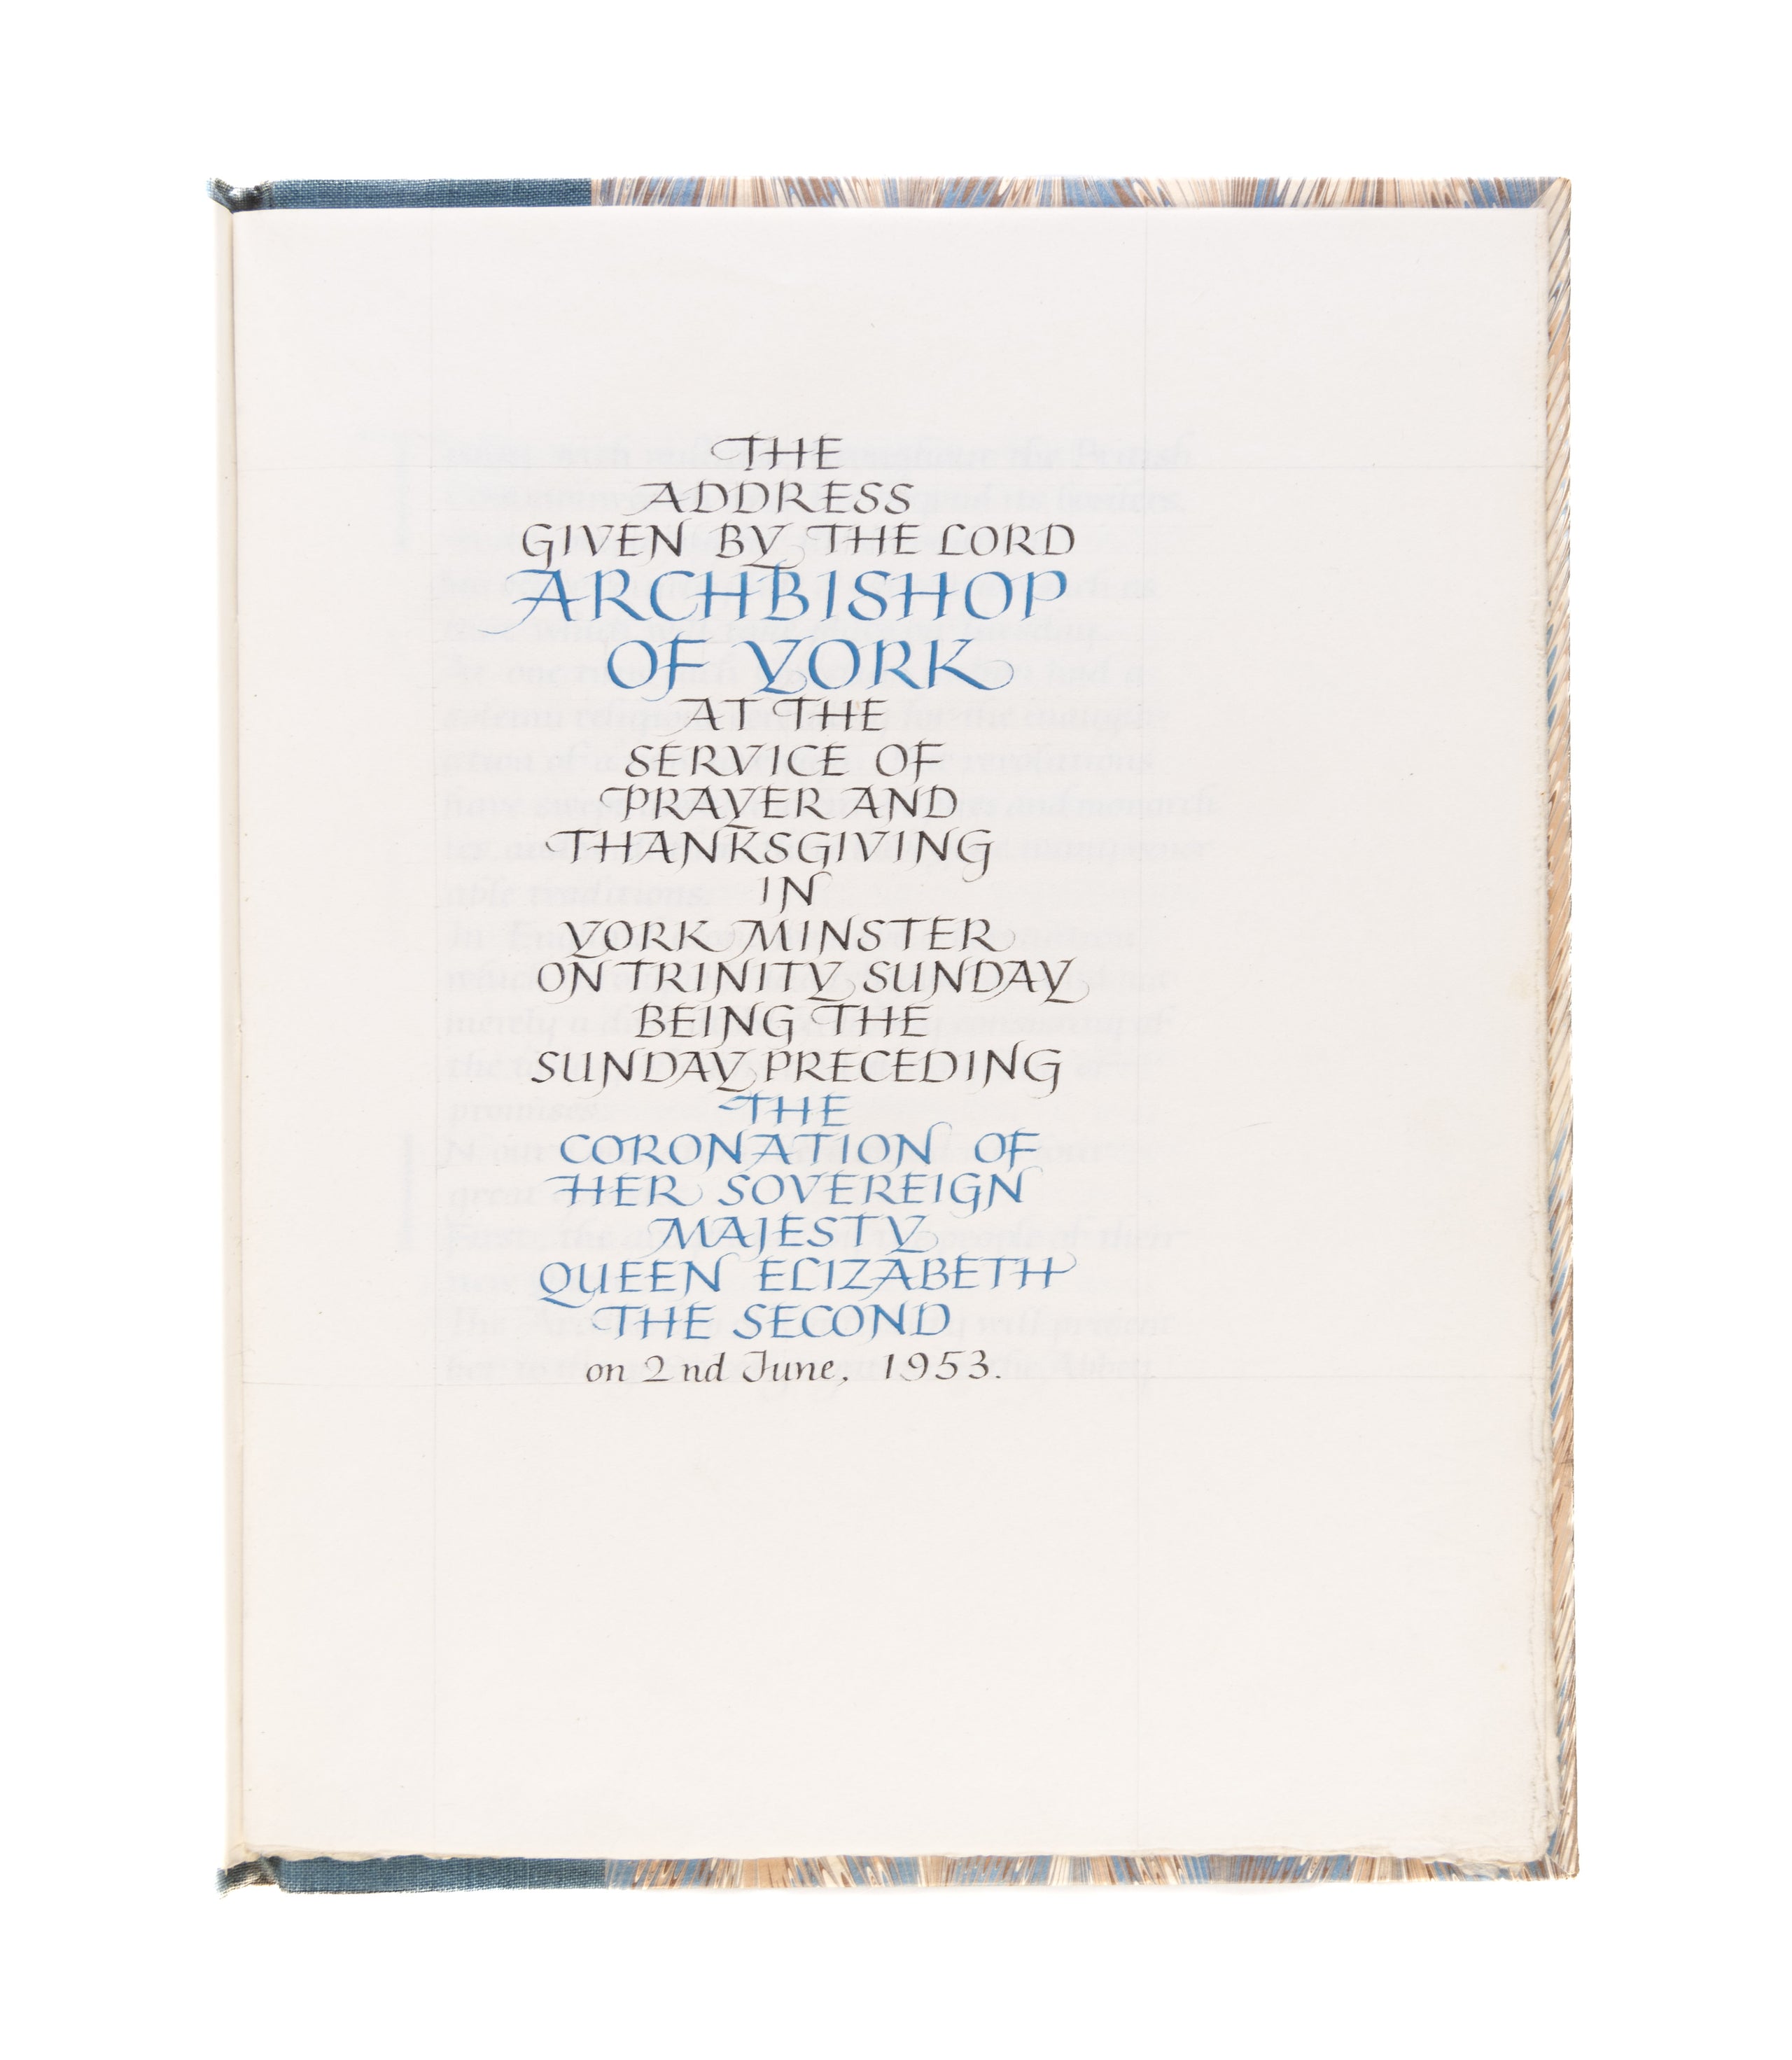 THE
ADDRESS
GIVEN BY THE LORD
ARCHBISHOP
OF YORK
AT THE
SERVICE OF
PRAYER AND
THANKSGIVING
IN
YORK MINSTER
ON TRINITY SUNDAY
BEING THE
SUNDAY PRECEDING
THE
CORONATION OF
HER SOVEREIGN
MAJESTY
QUEEN ELIZABETH
THE SECOND
on 2nd June, 1953.